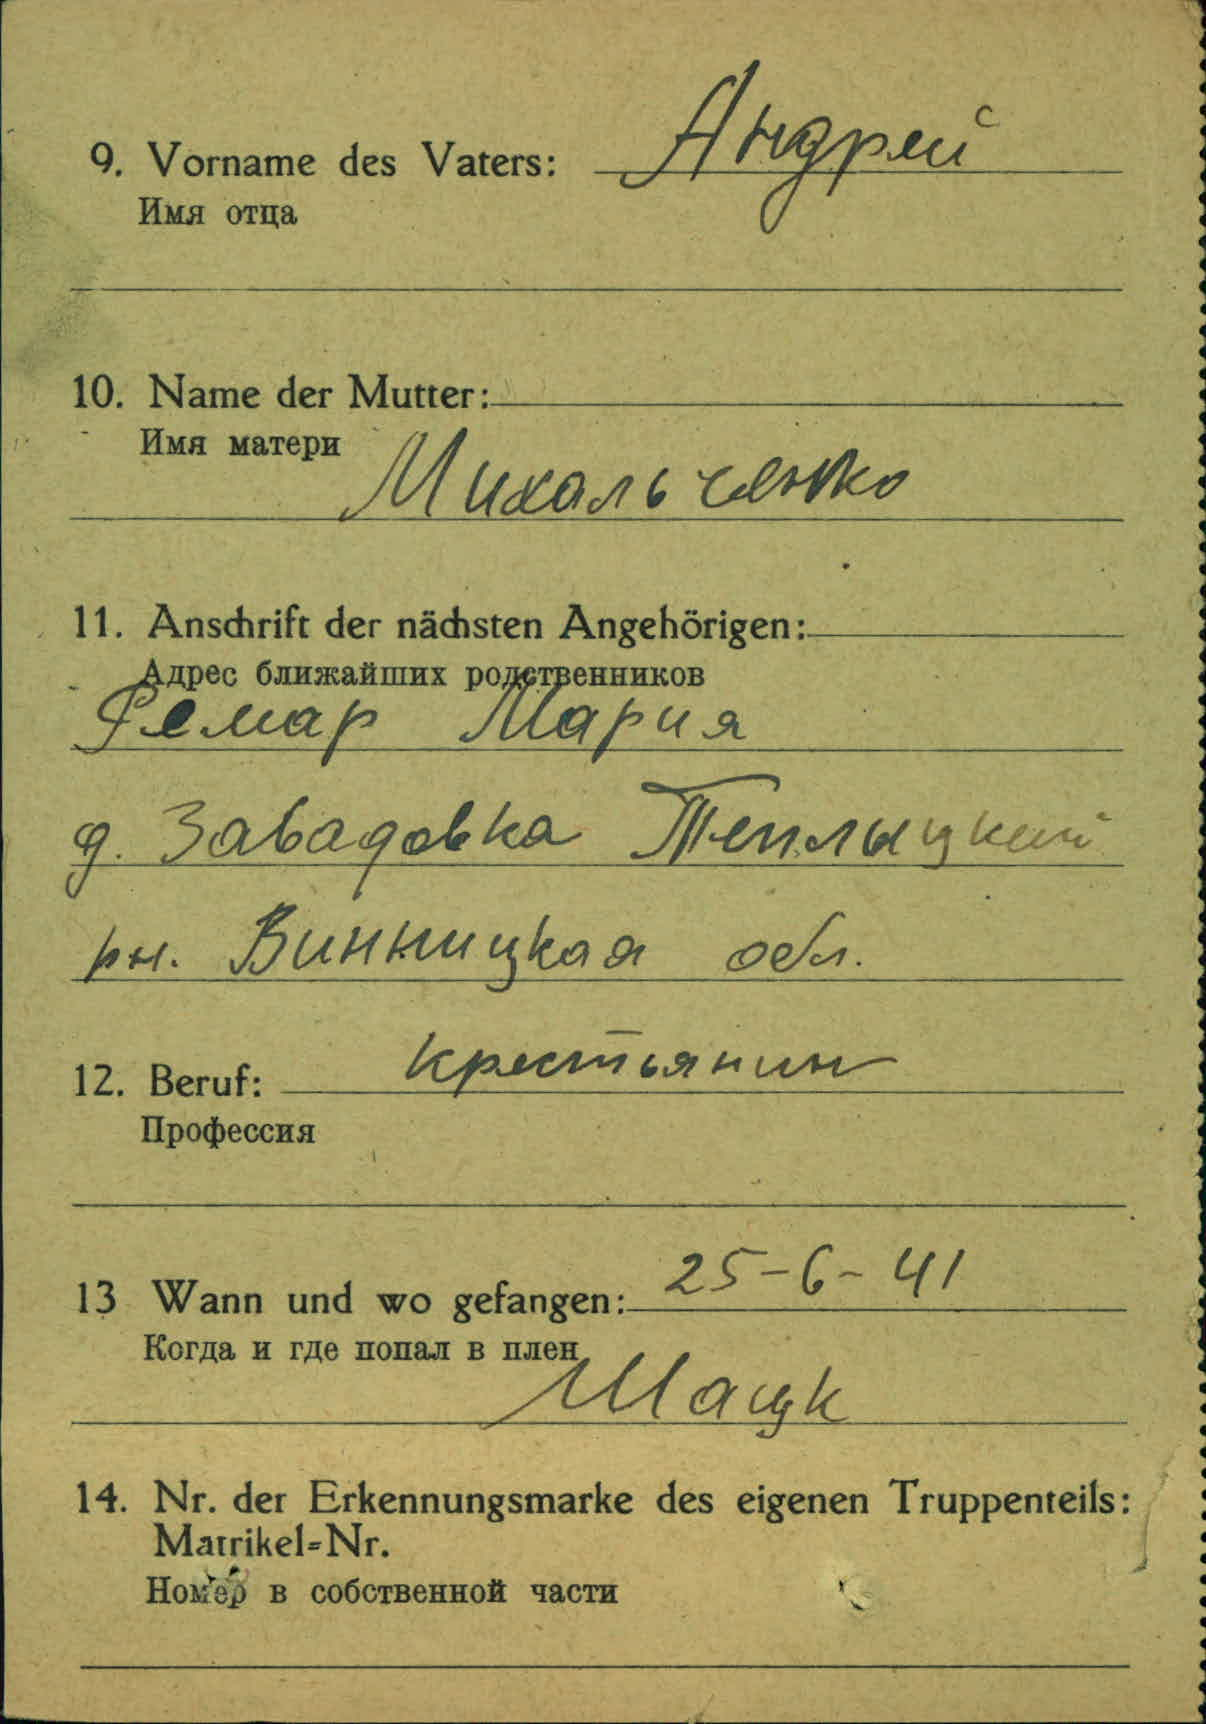 9. Vorname des Vaters: Андрей
Имя отца
10. Name der Mutter:
Имя матери
Михальченко
11. Anschrift der nächsten Angehörigen:
Адрес ближайших родственников
Мария
д. Завадовка Теплыцкий
рн. Винницкая обл.
12. Beruf: крестьянин
Профессия
13 Wann und wo gefangen: 25-6-41
Когда и где попал в плен
Шацк
14. Nr. der Erkennungsmarke des eigenen Truppenteils:
Matrikel=Nr.
Номер в собственной части